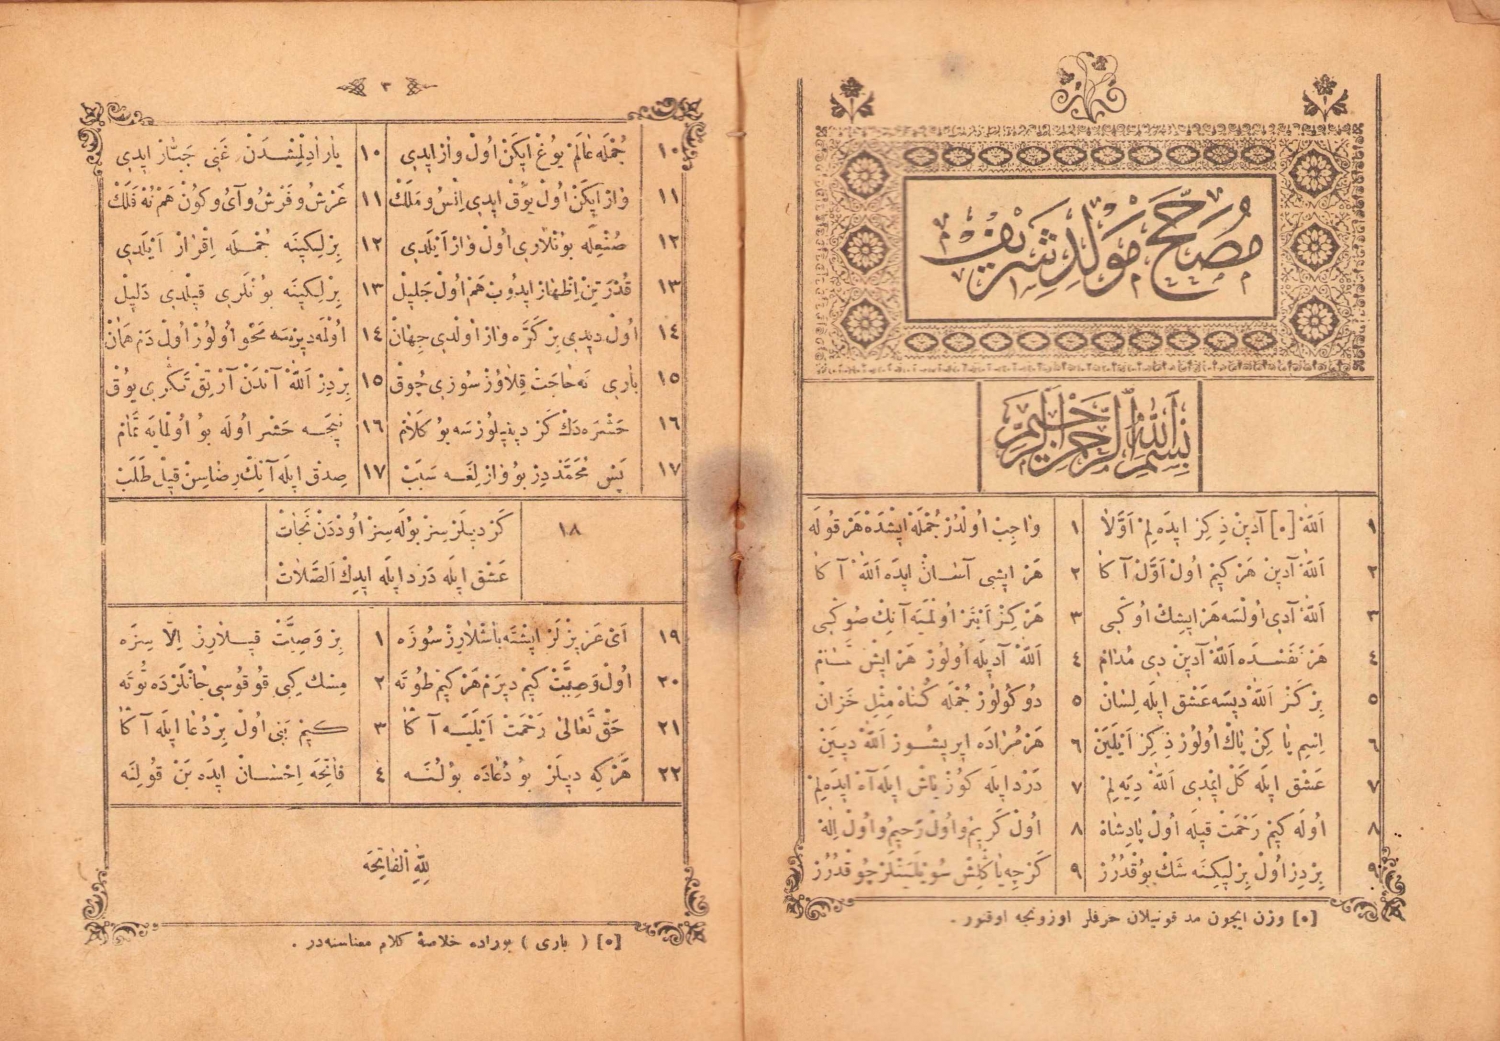 مُصَحَّح مَوْلِدِ شَرِيف
بِسْمِ اللّٰهِ الرَّحْمٰنِ الرَّحِيمِ
١ اَللّٰهْ [٠] آدِينْ ذِكِرْ ايدَه لِمْ اَوَّلَا ١ وَاجِبْ اُولْدُرْ جُمْلَه اِيشْدَه هَرْ قُولَه
٢ اَللّٰهْ آدِينْ هَرْ كِيمْ اُولْ اَوَّلْ آكَا ٢ هَرْ اِيشِى آسَانْ ايدَه اَللّٰهْ آكَا
٣ اَللّٰهْ آدِى اُولْسَه هَرْ اِيشِكْ اُوكِى ٣ هَرْكِزْ اَبْتَرْ اُولْمَيَه آنِكْ صُوكِى
٤ هَرْ نَفَسْدَه اَللّٰهْ آدِينْ دِى مُدَامْ ٤ اَللّٰهْ آدِيلَه اُولُورْ هَرْ اِيشْ تَمَامْ
٥ بِرْ كَزْ اَللّٰهْ دِيسَه عَشْقِ ايلَه لِسَانْ ٥ دُوكُولُورْ جُمْلَه كُنَاهْ مِثْلِ خَزَانْ
٦ اِسْمِ پَاكِنْ پَاكْ اُولُورْ ذِكِرْ اَيْلَيَنْ ٦ هَرْ مُرَادَه اِيرِيشُورْ اَللّٰهْ دِيَينْ
٧ عَشْقِ ايلَه كَلْ ايمْدِى اَللّٰهْ دِيَه لِمْ ٧ دَرْدِ ايلَه كُوزْ يَاشْ ايلَه آهْ ايدَه لِمْ
٨ اُولَه كِيمْ رَحْمَتْ قِيلَه اُولْ پَادِشَاهْ ٨ اُولْ كَرِيمْ و اُولْ رَحِيمْ و اُولْ اِلٰهْ
٩ بِرْدِرْ اُولْ بِرْلِيكِنَه شَكْ يُوقْدُرُرْ ٩ كَرْچِه يَاكْلِشْ سُويْلَيَنْلَرْ چُوقْدُرُرْ
[٠] وزن ايچون مد قونيلان حرفلر اوزونجه اوقنور .
٣
١٠ جُمْلَه عَالَمْ يُوغْ ايكَنْ اُولْ وَارْ ايدِى ١٠ يَارَادِلْمِشْدَنْ غَنِى جَبَّارْ ايدِى
١١ وَارْ ايكَنْ اُولْ يُوقْ ايدِى اِنْس و مَلَكْ ١١ عَرْش و فَرْش و آى و كُونْ هَمْ نُه فَلَكْ
١٢ صُنْعِلَه بُونْلَارِى اُولْ وَارْ اَيْلَدِى ١٢ بِرْلِيكِينَه جُمْلَه اِقْرَارْ اَيْلَدِى
١٣ قُدْرَتِينْ اِظْهَارْ ايدُوبْ هَمْ اُولْ جَلِيلْ ١٣ بِرْلِيكِينَه بُونْلَرِى قِيلْدِى دَلِيلْ
١٤ اُولْ دِيدِى بِرْ كَرَّه وَارْ اُولْدِى جِهَانْ ١٤ اُولْمَه دِيرْسَه مَحْو اُولُورْ اُولْ دَمْ هَمَانْ
١٥ بَارِى نَه حَاجَتْ قِلَاوُزْ سُوزِى چُوقْ ١٥ بِرْدِرْ اَللّٰهْ آنْدَنْ آرْتِقْ تَكْرِى يُوقْ
١٦ حَشْرَه دَكْ كَرْ دِينِيلُورْسَه بُو كَلَامْ ١٦ نِيجَه حَشْر اُولَه بُو اُولْمَايَه تَمَامْ
١٧ پَسْ مُحَمَّدْدِرْ بُو وَارْلِغَه سَبَبْ ١٧ صِدْقِ ايلَه آنِكْ رِضَاسِنْ قِيلْ طَلَبْ
١٨ كَرْ دِيلَرْسِزْ بُولَه سِزْ اُودْدَنْ نَجَاتْ
عَشْقِ ايلَه دَرْدِ ايلَه ايدِكْ اَلصَّلَاتْ
١٩ اَىْ عَزِيزْلَرْ ايشْتَه بَاشْلَارِزْ سُوزَه ١ بِرْ وَصِيَّتْ قِيلَارِزْ اِلَّا سِزَه
٢٠ اُولْ وَصِيَّتْ كِيمْ دِيرَمْ هَرْ كِيمْ طُوتَه ٢ مِسْكْ كِبِى قُوقُوسِى جَانْلَرْدَه تُوتَه
٢١ حَقْ تَعَالٰى رَحْمَتْ اَيْلَيَه آكَا ٣ كِيمْ بَنِى اُولْ بِرْ دُعَا ايلَه آكَا
٢٢ هَرْ كِه دِيلَرْ بُو دُعَادَه بُولُنَه ٤ فَاتِحَه اِحْسَانْ ايدَه بَنْ قُولِنَه
لِلّٰهِ الْفَاتِحَه
[٠] ( بارى ) بوراده خلاصهٔ كلام معناسنه در .